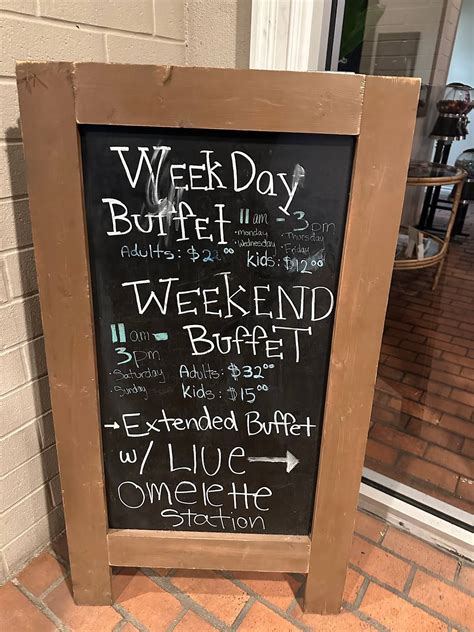 WeekDay
Buffet 11am - 3pm
• monday • Thursday
• Wednesday • Friday
Adults: $22⁰⁰ Kids: $12⁰⁰
WEEKEND
BuffET
11am -
3pm
• Saturday Adults: $32⁰⁰
• Sunday Kids: $15⁰⁰
→ Extended Buffet
w/ LIVE →
Omelette
Station